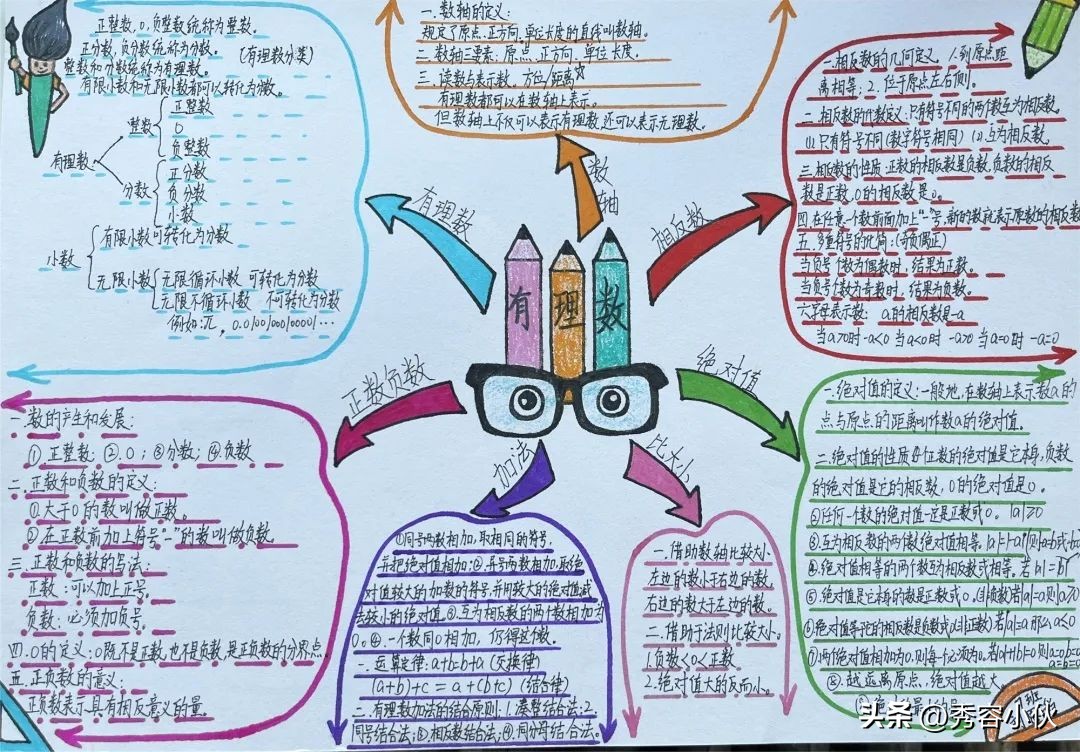 正整数,0,负整数统称为整数。
正分数,负分数统称为分数。(有理数分类)
整数和分数统称为有理数。
有限小数和无限小数都可以转化为分数。
有理数
整数
正整数
0
负整数
分数
正分数
负分数
小数
小数
有限小数可转化为分数
无限小数
无限循环小数 可转化为分数
无限不循环小数 不可转化为分数
例如:π,
一.数轴的定义:
规定了原点,正方向,单位长度的直线叫数轴。
二.数轴三要素:原点,正方向,单位长度。
三.读数与表示数,方位/距离☆
有理数都可以在数轴上表示。
但数轴上不仅可以表示有理数,还可以表示无理数。
一.相反数的几何定义 1.到原点距
离相等;2.位于原点左右两侧。
二.相反数的代数定义:只有符号不同的两个数互为相反数。
(1).只有符号不同(数字符号相同)(2).互为相反数。
三.相反数的性质:正数的相反数是负数,负数的相反
数是正数,0的相反数是0。
四.在任意一个数前面加上"-"号,新的数就表示原数的相反数
五.多重符号的化简:(奇负偶正)
当负号个数为偶数时,结果为正数。
当负号个数为奇数时,结果为负数。
六.字母表示数: a的相反数是-a
当a>0时-a<0 当a<0时 -a>0 当a=0时 -a=0
有理数
数轴
相反数
有理数
正数负数
绝对值
加法
比大小
一.数的产生和发展:
①正整数;②.0;③分数;④负数
二.正数和负数的定义:
①大于0的数叫做正数。
②在正数前加上符号"-"的数叫做负数。
三.正数和负数的写法:
正数:可以加上正号。
负数:必须加负号。
四.0的定义:0既不是正数,也不是负数,是正负数的分界点
五.正负数的意义:
正负数表示具有相反意义的量。
①同号两数相加,取相同的符号,
并把绝对值相加;②异号两数相加,取绝
对值较大的加数的符号,并用较大的绝对值减
去较小的绝对值。③.互为相反数的两个数相加为
0。④.一个数同0相加,仍得这个数。
一.运算定律:a+b=b+a(交换律)
(a+b)+c=a+(b+c)(结合律)
二.有理数加法的结合原则:1.凑整结合法;2.
同号结合法;③相反数结合法;④.同分母结合法。
一.借助数轴比较大小
左边的数小于右边的数,
右边的数大于左边的数。
二.借助于法则比较大小。
1.负数<0<正数
2.绝对值大的反而小。
一.绝对值的定义:一般地,在数轴上表示数a的
点与原点的距离叫作数a的绝对值。
二.绝对值的性质:①正数的绝对值是它本身,负数
的绝对值是它的相反数,0的绝对值是0。
②任何一个数的绝对值一定是正数或0。
③互为相反数的两个数绝对值相等。
④.绝对值相等的两个数互为相反数或相等。
⑤绝对值是它本身的数是正数或0。
⑦两个绝对值相加为0,则每个必须为0。
⑧.越远离原点,绝对值越大
头条@秀容小伙